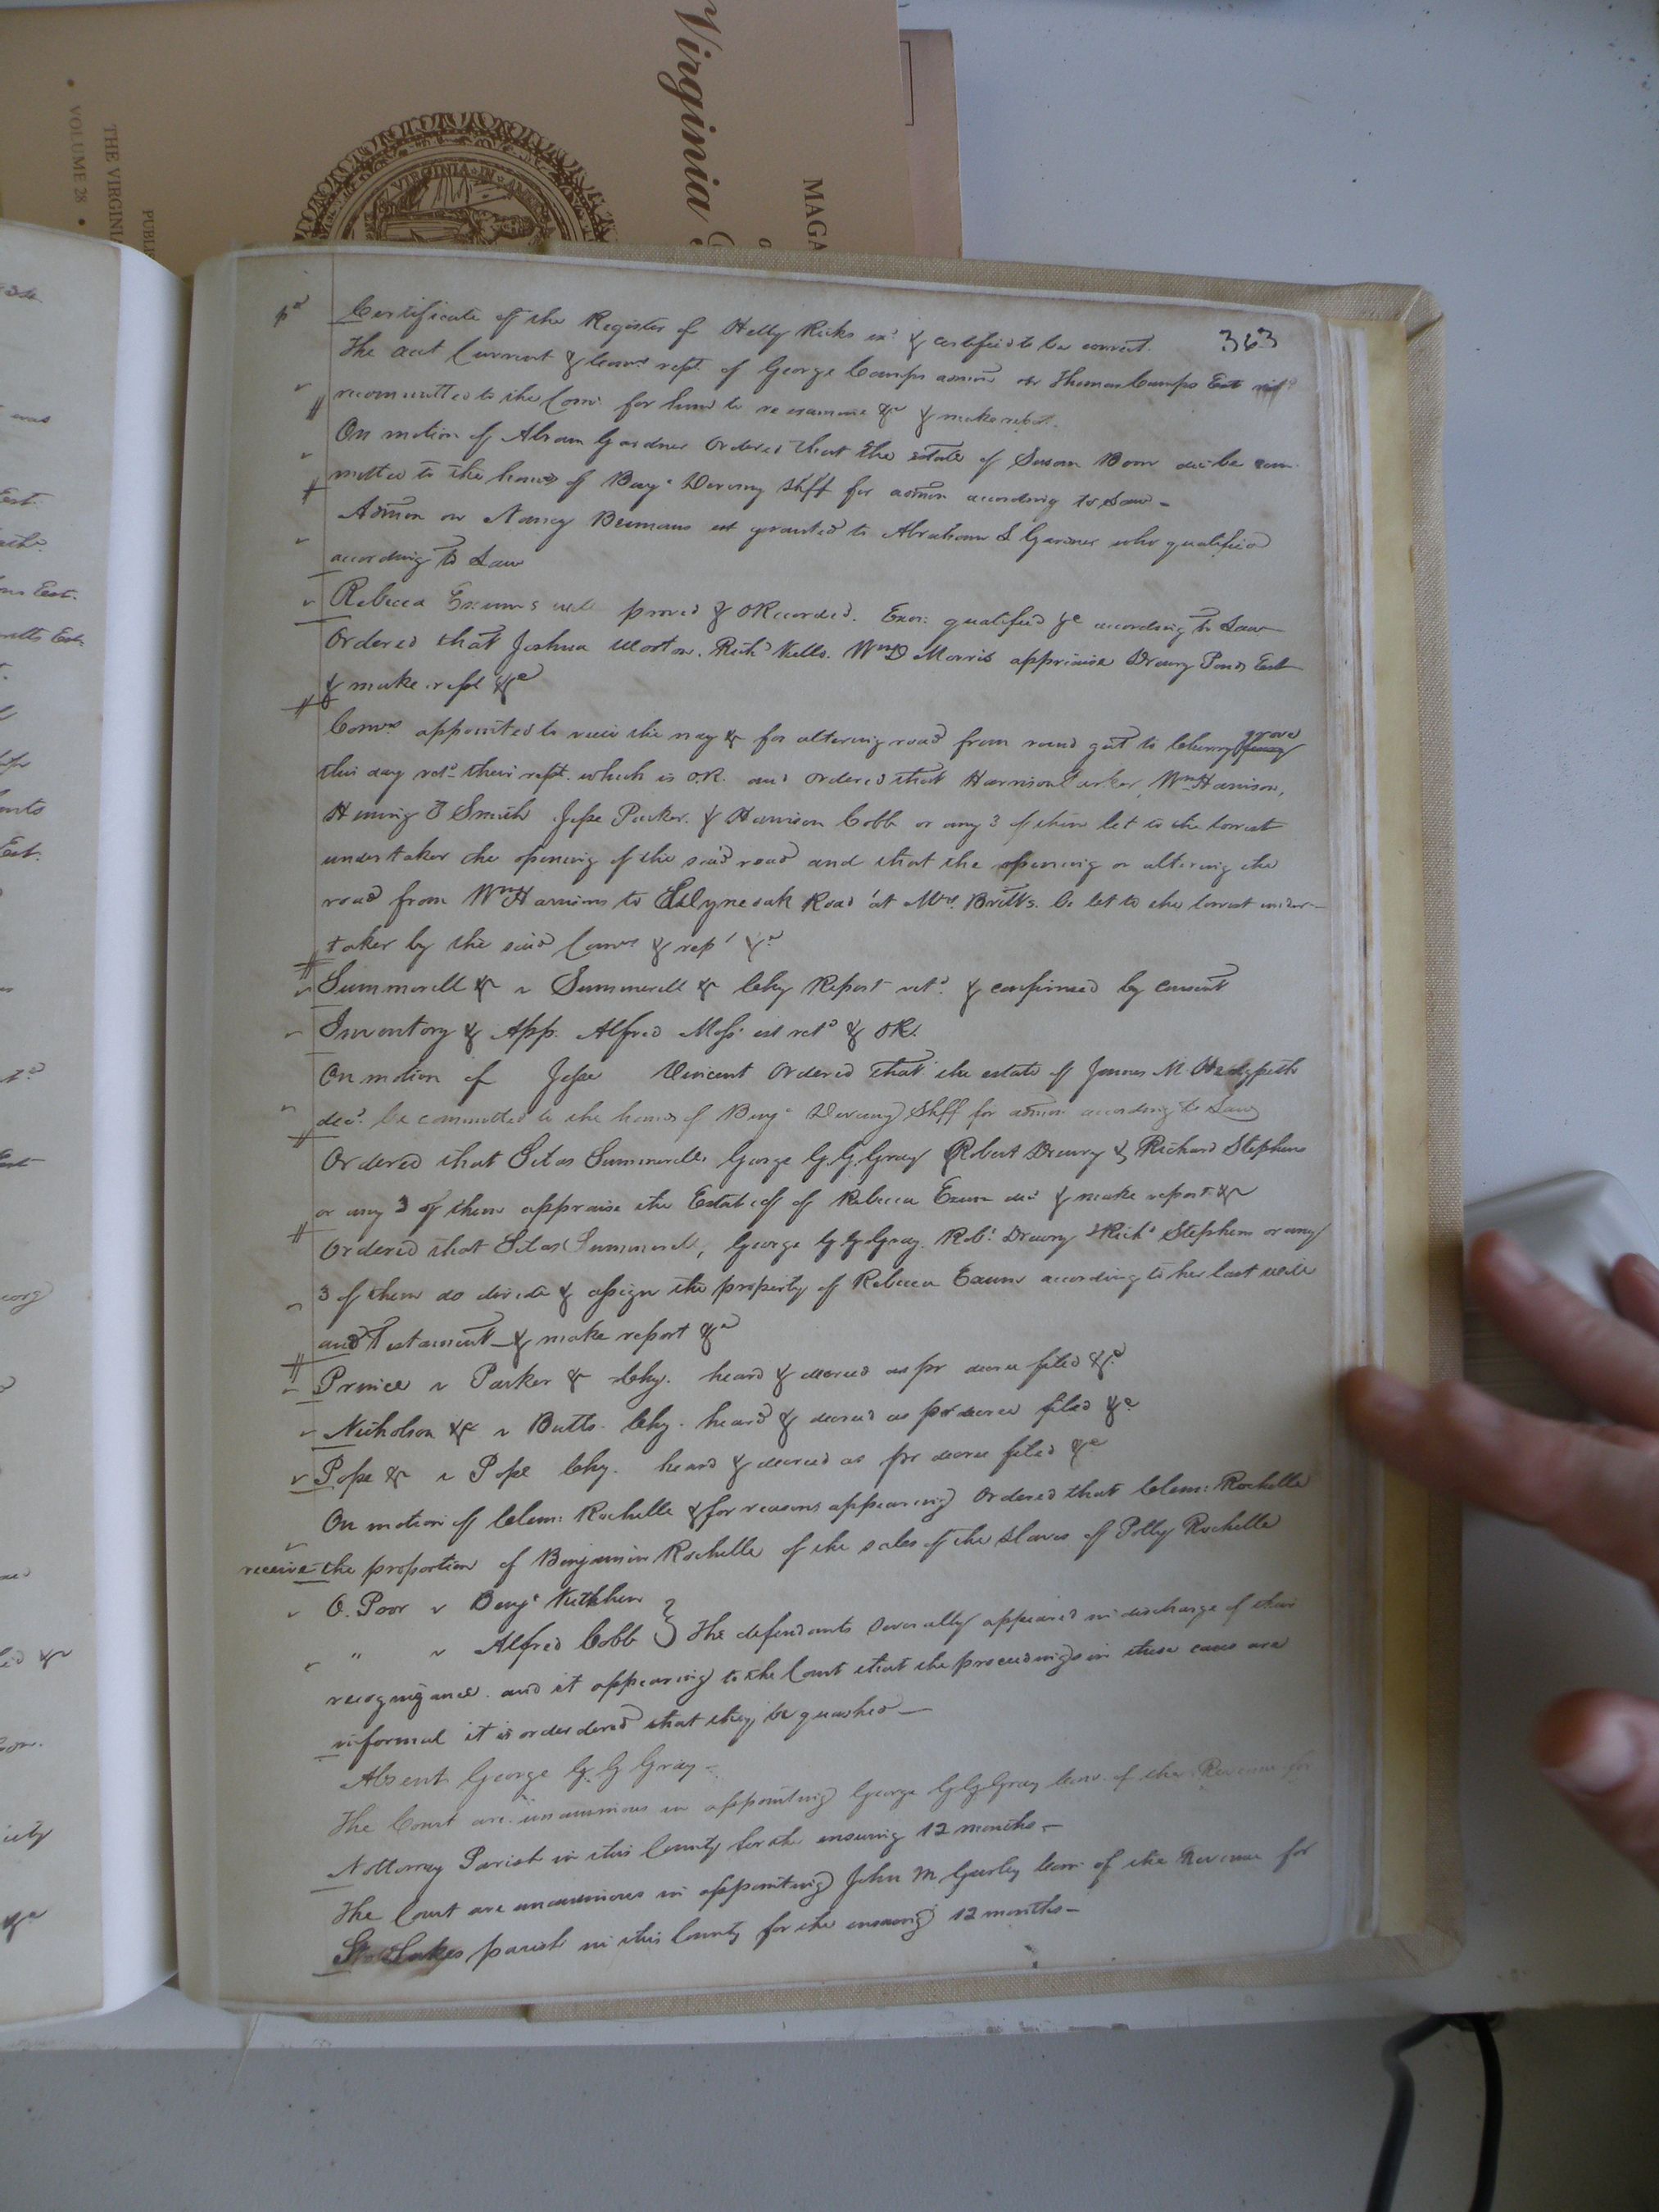 Virginia
MAGA
THE VIRGINI
VOLUME 28
PUBL
VIRGINIA IN
363
pd Certificate of the Register of Hetty Ricks exd & certified to be correct.
The acct Current & Comrs rept. of George Camps admr on Thomas Camps Est retd
recommitted to the Comr for him to re examine &c & make rept.
On motion of Abram Gardner Ordered that the estate of Susan Boon decd be com
mitted to the hands of Benja Devany Shff for admon according to Law -
Admon on Nancy est granted to Abraham S Gardner who qualified
according to Law
Rebecca Exums will proved & ORecorded. Exor: qualified &c according to Law
Ordered that Joshua Richd Kello. Wm D Morris appraise Drewry Ponds Est
& make rept &c
Comrs appointed to view the way &c for altering road from round gut to Cherry grove
this day retd their rept. which is O.R. and ordered that Harrison Parker, Wm Harrison,
Hening T Smith Jesse Parker. & Harrison Cobb or any 3 of them let to the lowest
undertaker the opening of the said road and that the opening or altering the
road from Wm Harrisons to Road at Mrs. Britts. be let to the lowest under-
taker by the said Comrs & rept &c
Summerell &c v Summerell &c Chy Report retd. & confirmed by Consent
Inventory & App. Alfred Moss est retd & OR.
On motion of Jesse Vincent Ordered that the estate of James M Hedgpeth
decd. be committed to the hands of Benja Devany Shff for admon according to Law
Ordered that Silas Summerell, George G. G. Gray Robert Drewry & Richard Stephens
or any 3 of them appraise the Estate of of Rebecca Exum decd & make report &c
Ordered that Silas Summerell, George G G Gray. Robt. Drewry & Richd Stephens or any
3 of them do divide & assign the property of Rebecca Exum according to her last will
and Testament & make report &c
Prince v Parker &c Chy. heard & decreed as pr decree filed &c
Nicholson &c v Butts. Chy. heard & decreed as pr decree filed &c
Pope &c v Pope Chy. heard & decreed as pr decree filed &c
On motion of Clem: Rochelle & for reasons appearing Ordered that Clem: Rochelle
receive the proportion of Benjamin Rochelle of the sales of the slaves of Polly Rochelle
O. Poor v Benja Kitchen
" v Alfred Cobb } The defendants severally appeared in discharge of their
recognizance. and it appearing to the Court that the proceedings in these cases are
informal it is orderdered that they be quashed —
Absent George G. G Gray -
The Court are unanimous in appointing George G G Gray Com. of the Revenue for
Nottoway Parish in this County for the ensuing 12 months. -
The Court are unanimous in appointing John M Gurley Com. of the Revenue for
St Lukes parish in this County for the ensuing 12 months -